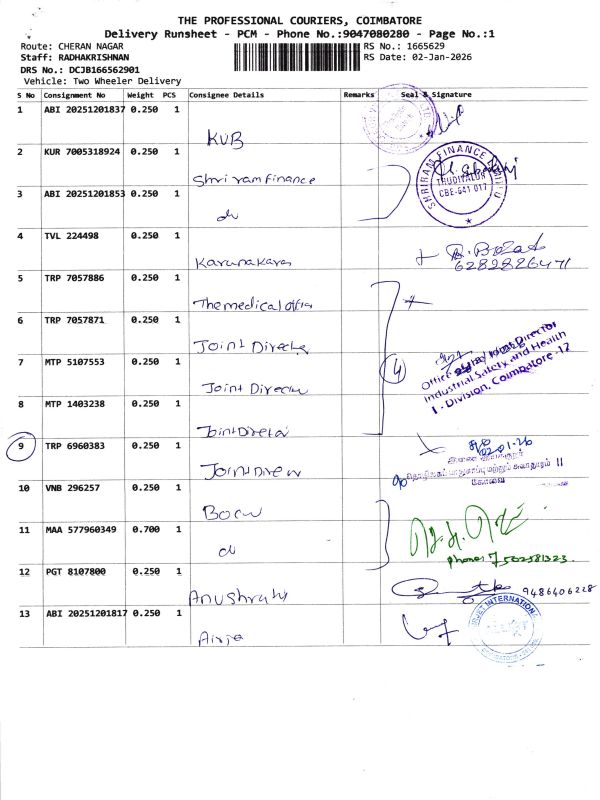 THE PROFESSIONAL COURIERS, COIMBATORE
Delivery Runsheet - PCM - Phone No.:9047080280 - Page No.:1
Route: CHERAN NAGAR
RS No.: 1665629
Staff: RADHAKRISHNAN
RS Date: 02-Jan-2026
DRS No.: DCJB166562901
Vehicle: Two Wheeler Delivery
S No Consignment No Weight PCS Consignee Details Remarks Seal & Signature
1 ABI 20251201837 0.250 1
KUB
2 KUR 7005318924 0.250 1
Shriram Finance
SHRIRAM FINANCE LIMITED
THUDIYALUR
CBE-641 017
3 ABI 20251201853 0.250 1
do
4 TVL 224498 0.250 1
Karunakaran
6282826471
5 TRP 7057886 0.250 1
The medical
6 TRP 7057871 0.250 1
Joint
7 MTP 5107553 0.250 1
Joint
4
Office of the Joint Director
Industrial Safety and Health
I - Division, Coimbatore -12
8 MTP 1403238 0.250 1
Joint
9 TRP 6960383 0.250 1
Joint
02-01-26
இணை இயக்குநர்
தொழிலகப் பாதுகாப்பு மற்றும் சுகாதாரம் II
கோவை
10 VNB 296257 0.250 1
11 MAA 577960349 0.700 1
do
Phone: 7502581323
12 PGT 8107800 0.250 1
9486406228
13 ABI 20251201817 0.250 1
INTERNATIONAL